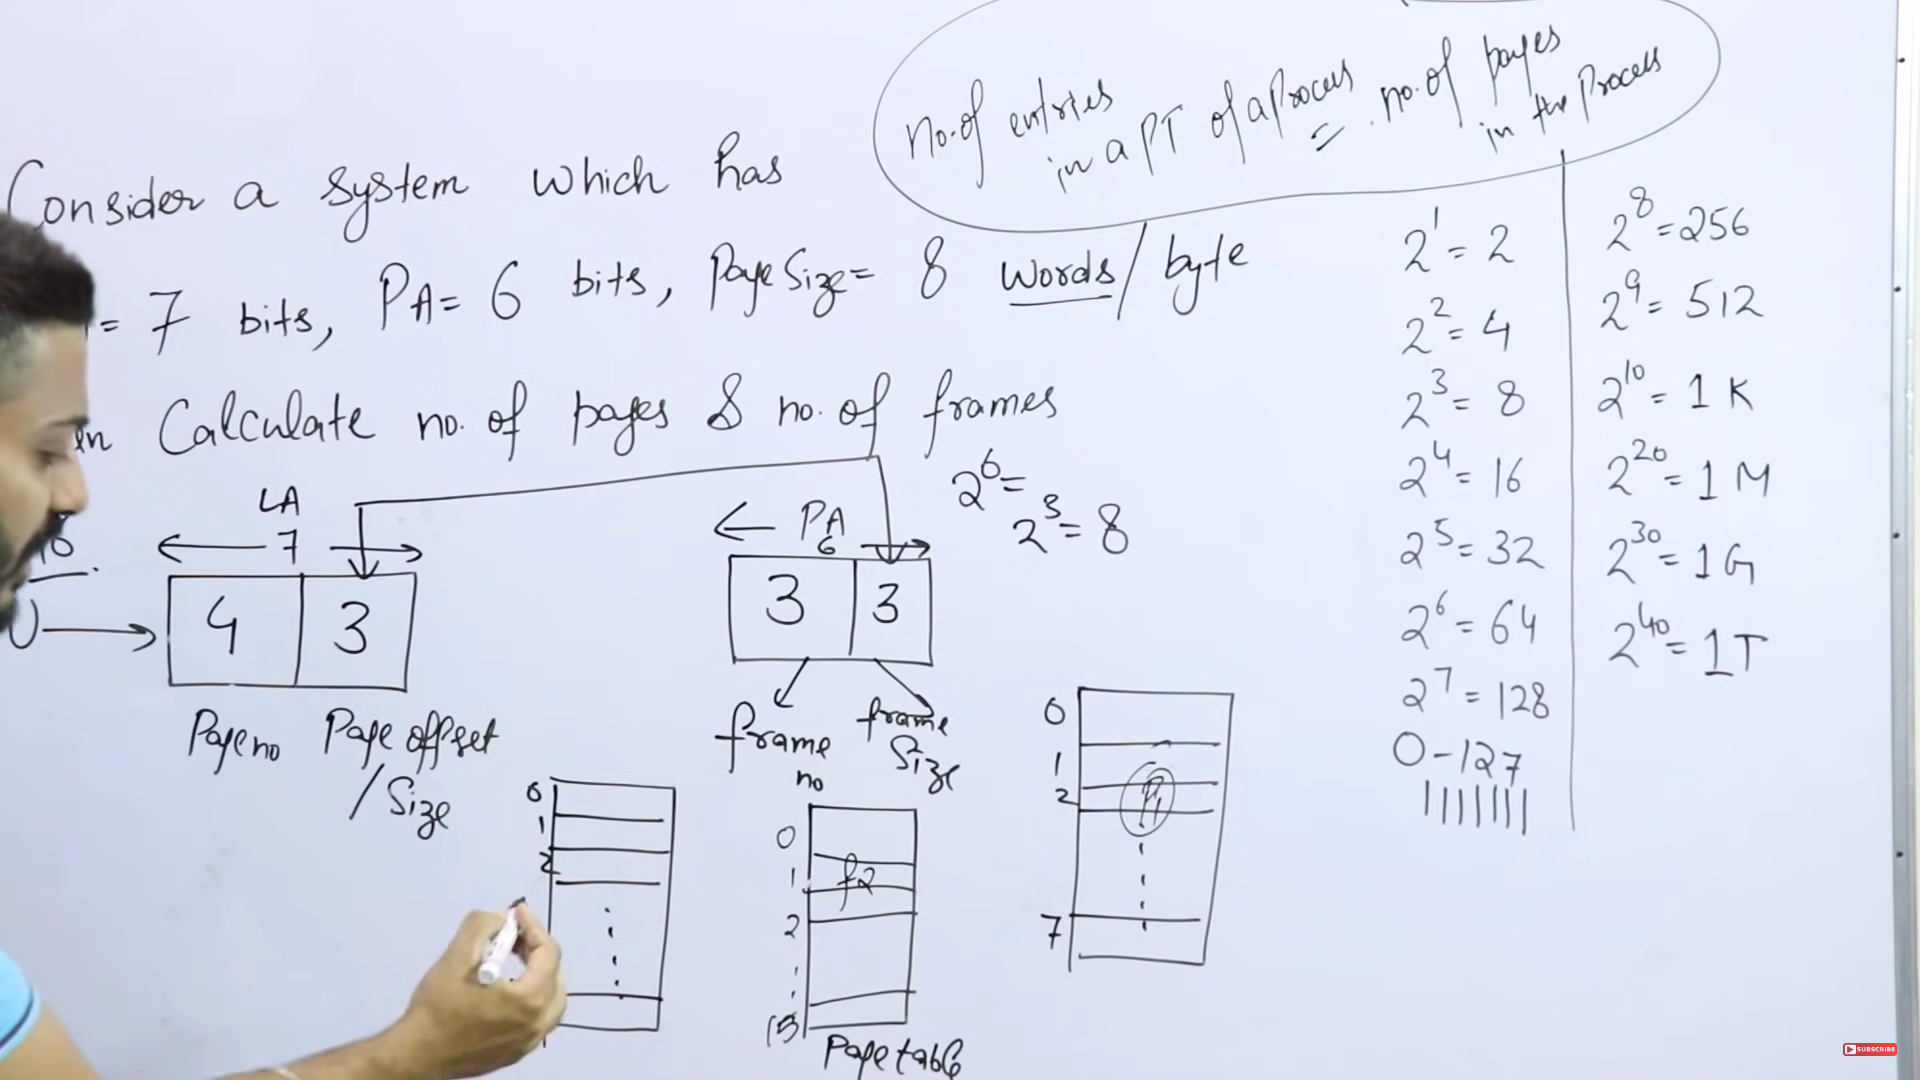 No. of entries
in a PT of a Process = no. of pages
in the Process
Consider a system which has
= 7 bits, PA= 6 bits, Page Size= 8 Words/byte
Calculate no. of pages & no. of frames
2^6=
2^3= 8
LA
7
4 3
Page no Page offset
/Size
PA
6
3 3
frame no
frame Size
0
1
2
0
1 f2
2
15
Page table
0
1
2
P1
7
2^1 = 2
2^2 = 4
2^3 = 8
2^4 = 16
2^5 = 32
2^6 = 64
2^7 = 128
0-127
2^8 = 256
2^9 = 512
2^10 = 1 K
2^20 = 1 M
2^30 = 1 G
2^40 = 1 T
SUBSCRIBE